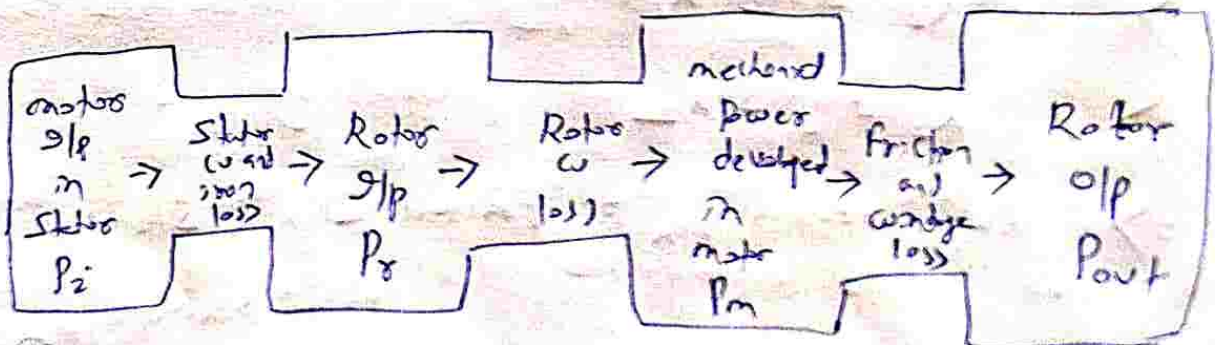 motor
I/p
in
Stator
Pi
→
Stator
cu and
iron
loss
→
Rotor
I/p
Pr
→
Rotor
cu
loss
→
mechanical
Power
developed
in
motor
Pm
→
Friction
and
windage
loss
→
Rotor
O/p
Pout